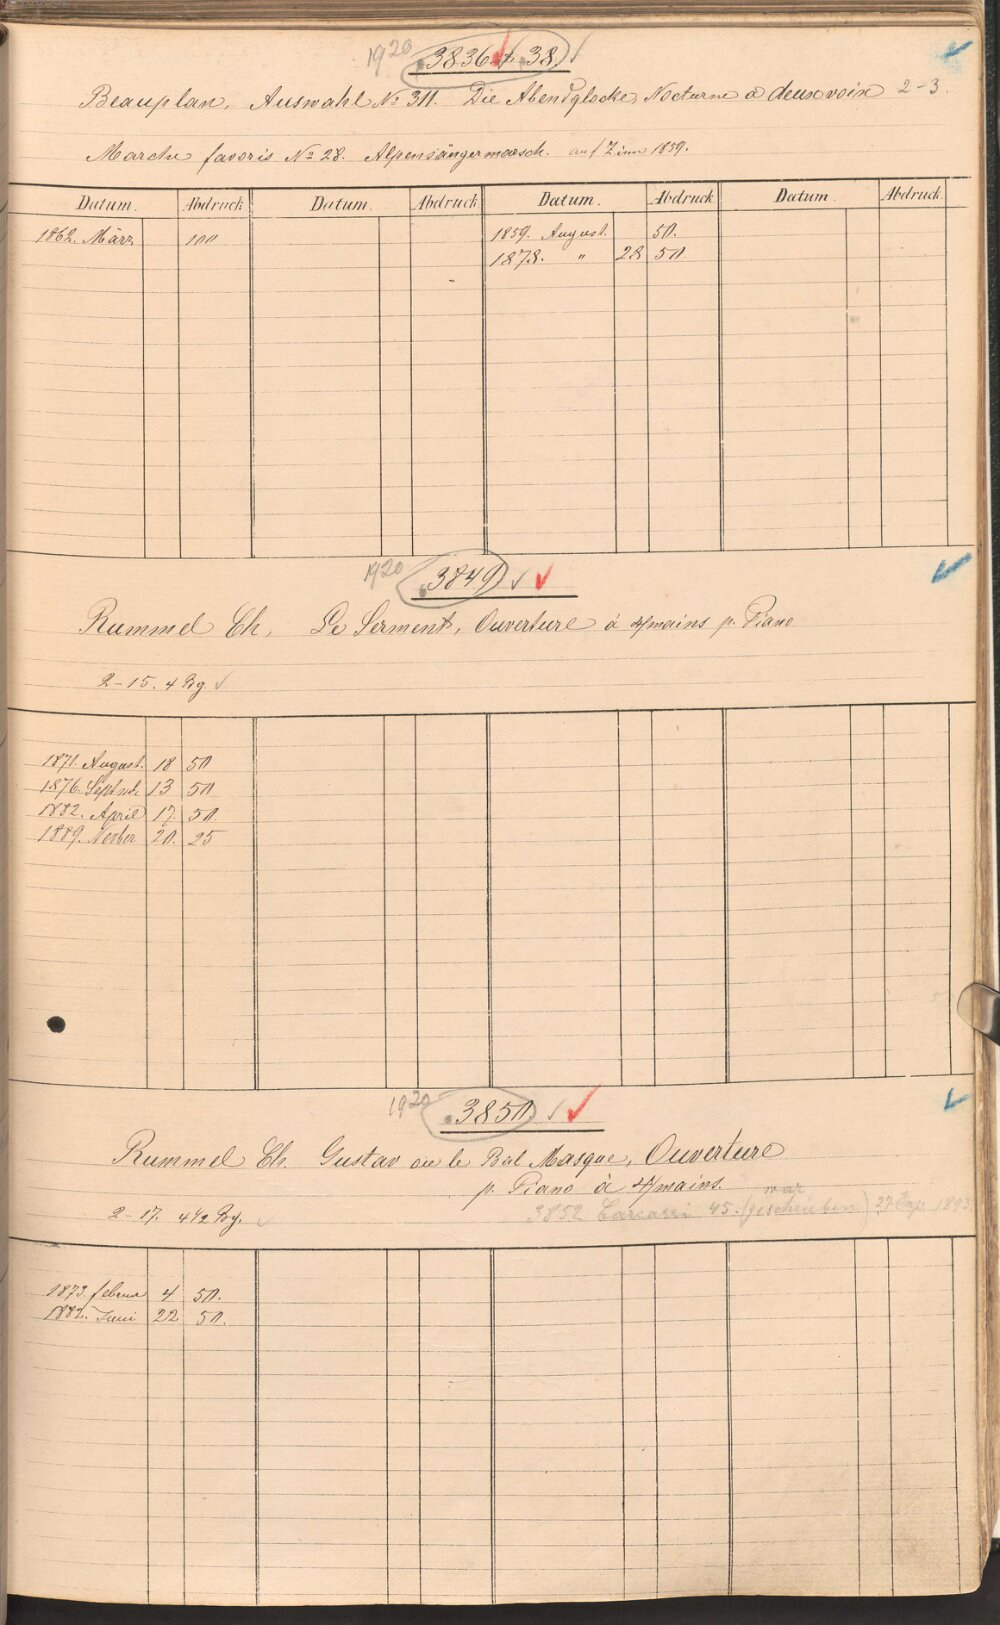 1920 3836 & 38.
Beauplan, Auswahl No 311. Die Abendglocke, Nocturne à deux voix 2-3.
Marche favoris No 28. Alpensängermarsch. auf Zinn 1859.
Datum. Abdruck Datum. Abdruck Datum. Abdruck Datum. Abdruck
1862. März 100 1859. August. 50.
1878. " 28 50.
1920 3849
Rummel Ch, Le Serment, Ouverture à 4/mains p. Piano
2-15. 4 Bg.
1871. August. 18 50
1876. Septmb. 13 50
1882. April 17. 50
1889. Novber 20. 25
1920 3850.
Rummel Ch. Gustav ou le Bal Masque, Ouverture
p. Piano à 4/mains.
2-17. 4 1/2 Bg.
war
3852 Carcassi 45. (geschrieben) 27. 1893
1873. febrar 4 50.
1882. Juni 22 50.